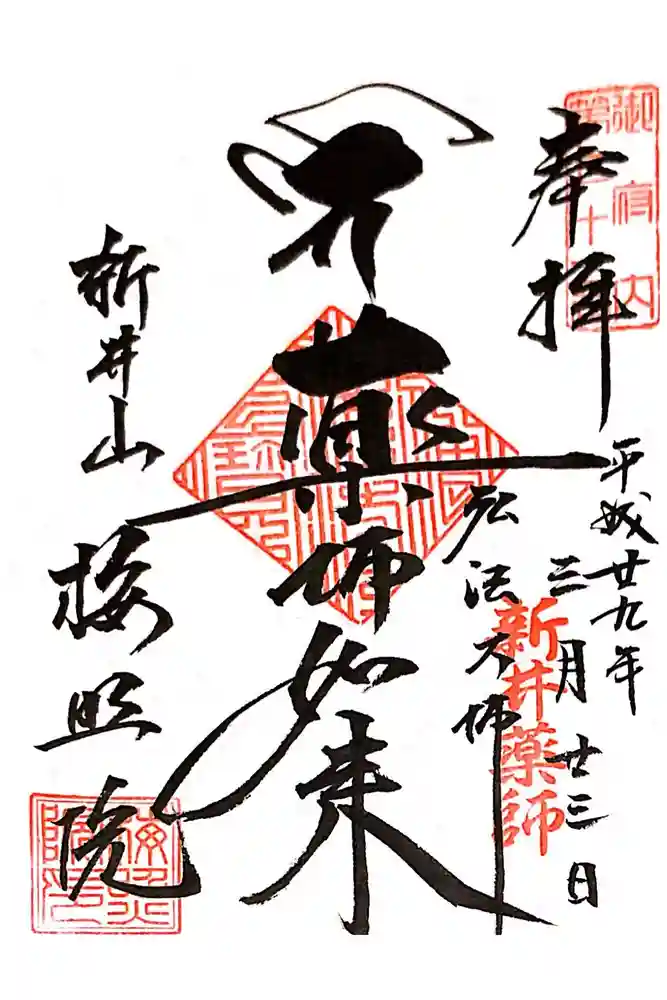 奉拝
御府内
平成廿九年
三月廿三日
新井薬師
弘法大師
薬師如来
新井山
梅照院